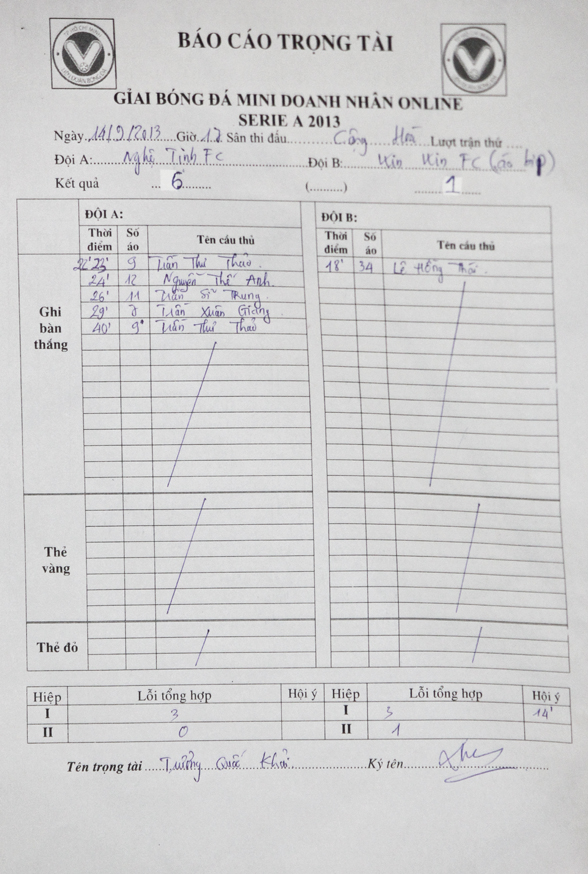 BÁO CÁO TRỌNG TÀI
GIẢI BÓNG ĐÁ MINI DOANH NHÂN ONLINE
SERIE A 2013
Ngày 14/9/2013 Giờ 17 Sân thi đấu Cộng Hoà Lượt trận thứ
Đội A: Nghệ Tĩnh FC Đội B: Kin Kin FC (áo
Kết quả 6 (..........) 1
ĐỘI A: ĐỘI B:
Thời điểm Số áo Tên cầu thủ Thời điểm Số áo Tên cầu thủ
Ghi bàn thắng
22' 23' 9 Trần Thư Thảo 18' 34 Lê Hồng
24' 12 Nguyễn Thế Anh
26' 11 Trần Sĩ Trung
29' Trần Xuân Giang
40' 9 Trần Thư Thảo
Thẻ vàng
Thẻ đỏ
Hiệp Lỗi tổng hợp Hội ý Hiệp Lỗi tổng hợp Hội ý
I 3 I 3 14'
II 0 II 1
Tên trọng tài Trường Quốc Ký tên